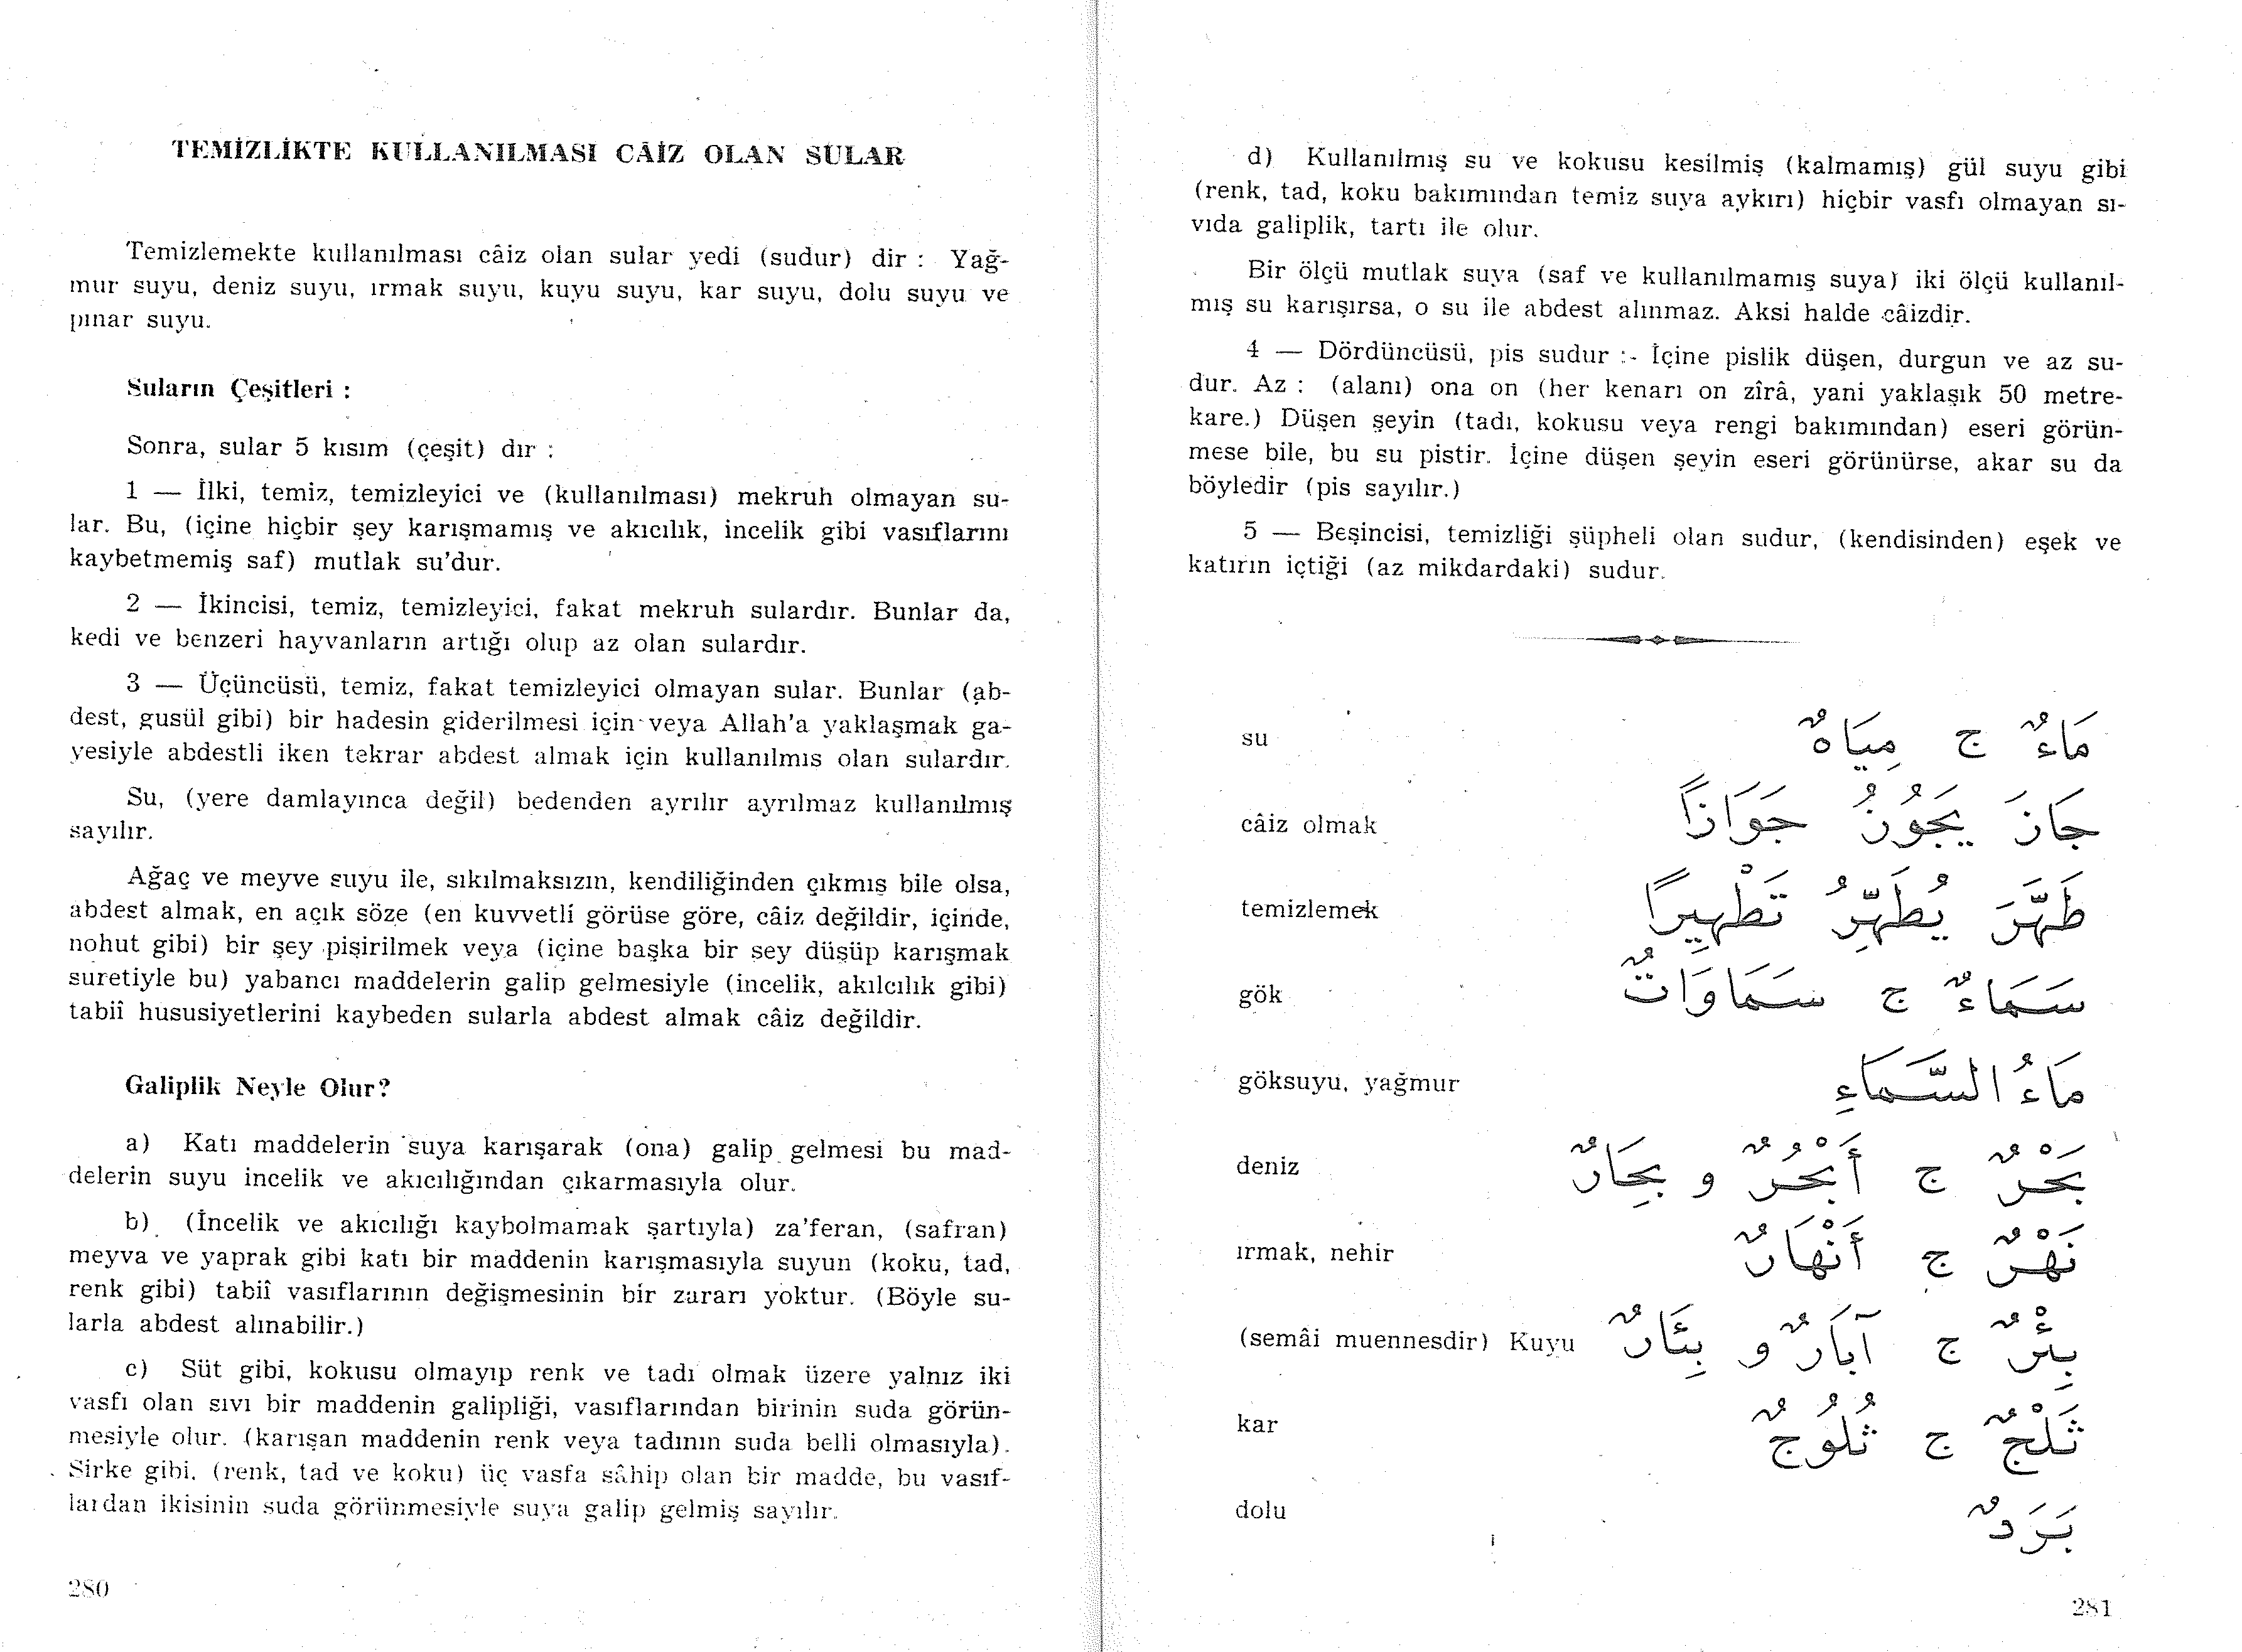 TEMİZLİKTE KULLANILMASI CÂİZ OLAN SULAR
Temizlemekte kullanılması câiz olan sular yedi (sudur) dir : Yağ-
mur suyu, deniz suyu, ırmak suyu, kuyu suyu, kar suyu, dolu suyu ve
pınar suyu.
Suların Çeşitleri :
Sonra, sular 5 kısım (çeşit) dır :
1 — İlki, temiz, temizleyici ve (kullanılması) mekruh olmayan su-
lar. Bu, (içine hiçbir şey karışmamış ve akıcılık, incelik gibi vasıflarını
kaybetmemiş saf) mutlak su'dur.
2 — İkincisi, temiz, temizleyici, fakat mekruh sulardır. Bunlar da,
kedi ve benzeri hayvanların artığı olup az olan sulardır.
3 — Üçüncüsü, temiz, fakat temizleyici olmayan sular. Bunlar (ab-
dest, gusül gibi) bir hadesin giderilmesi için veya Allah'a yaklaşmak ga-
yesiyle abdestli iken tekrar abdest almak için kullanılmıs olan sulardır.
Su, (yere damlayınca değil) bedenden ayrılır ayrılmaz kullanılmış
sayılır.
Ağaç ve meyve suyu ile, sıkılmaksızın, kendiliğinden çıkmış bile olsa,
abdest almak, en açık söze (en kuvvetli görüse göre, câiz değildir, içinde,
nohut gibi) bir şey pişirilmek veya (içine başka bir sey düşüp karışmak
suretiyle bu) yabancı maddelerin galip gelmesiyle (incelik, akılcılık gibi)
tabiî hususiyetlerini kaybeden sularla abdest almak câiz değildir.
Galiplik Neyle Olur?
a) Katı maddelerin suya karışarak (ona) galip gelmesi bu mad-
delerin suyu incelik ve akıcılığından çıkarmasıyla olur.
b) (İncelik ve akıcılığı kaybolmamak şartıyla) za'feran, (safran)
meyva ve yaprak gibi katı bir maddenin karışmasıyla suyun (koku, tad,
renk gibi) tabiî vasıflarının değişmesinin bir zararı yoktur. (Böyle su-
larla abdest alınabilir.)
c) Süt gibi, kokusu olmayıp renk ve tadı olmak üzere yalnız iki
vasfı olan sıvı bir maddenin galipliği, vasıflarından birinin suda görün-
mesiyle olur. (karışan maddenin renk veya tadının suda belli olmasıyla).
Sirke gibi, (renk, tad ve koku) üç vasfa sâhip olan bir madde, bu vasıf-
lardan ikisinin suda görünmesiyle suya galip gelmiş sayılır.
280
d) Kullanılmış su ve kokusu kesilmiş (kalmamış) gül suyu gibi
(renk, tad, koku bakımından temiz suya aykırı) hiçbir vasfı olmayan sı-
vıda galiplik, tartı ile olur.
Bir ölçü mutlak suya (saf ve kullanılmamış suya) iki ölçü kullanıl-
mış su karışırsa, o su ile abdest alınmaz. Aksi halde câizdir.
4 — Dördüncüsü, pis sudur :- İçine pislik düşen, durgun ve az su-
dur. Az : (alanı) ona on (her kenarı on zîrâ, yani yaklaşık 50 metre-
kare.) Düşen şeyin (tadı, kokusu veya rengi bakımından) eseri görün-
mese bile, bu su pistir. İçine düşen şeyin eseri görünürse, akar su da
böyledir (pis sayılır.)
5 — Beşincisi, temizliği şüpheli olan sudur, (kendisinden) eşek ve
katırın içtiği (az mikdardaki) sudur.
su مَاءٌ ج مِيَاهٌ
câiz olmak جَازَ يَجُوزُ جَوَازًا
temizlemek طَهَّرَ يُطَهِّرُ تَطْهِيرًا
gök سَمَاءٌ ج سَمَاوَاتٌ
göksuyu, yağmur مَاءُ السَّمَاءِ
deniz بَحْرٌ ج أَبْحُرٌ و بِحَارٌ
ırmak, nehir نَهْرٌ ج أَنْهَارٌ
(semâi muennesdir) Kuyu بِئْرٌ ج آبَارٌ و بِئَارٌ
kar ثَلْجٌ ج ثُلُوجٌ
dolu بَرَدٌ
281